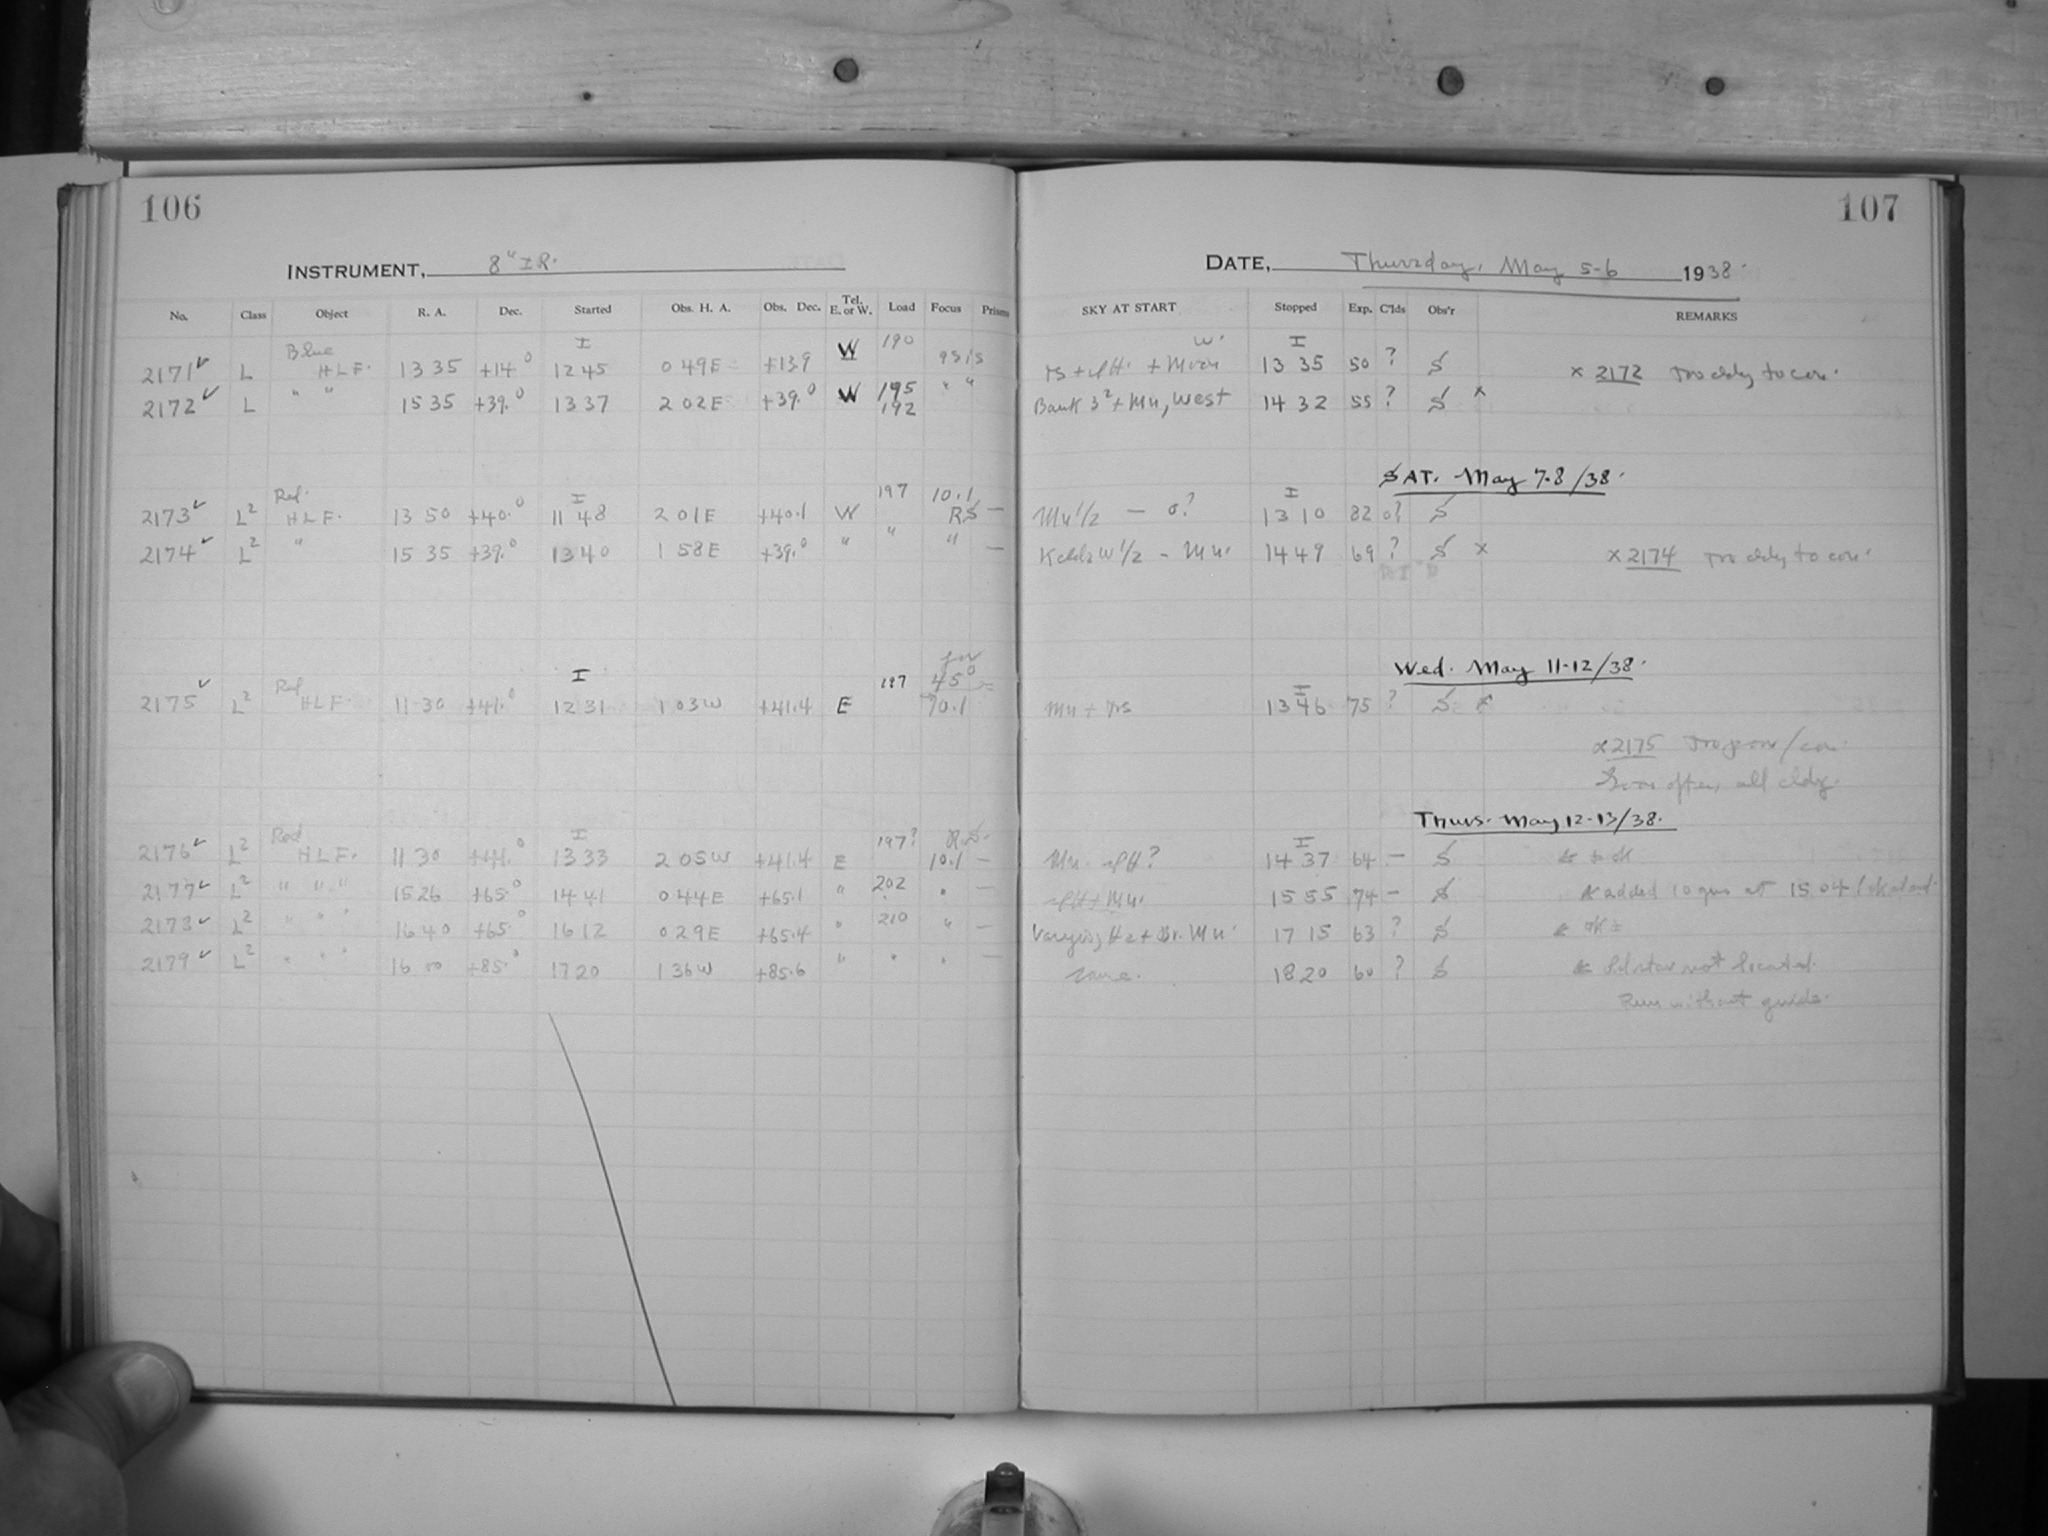 106
INSTRUMENT, 8" IR.
No. Class Object R. A. Dec. Started Obs. H. A. Obs. Dec. Tel. E. or W. Load Focus Prisms
Blue I W 190
2171 ✓ L H L F. 13 35 +14.0 12 45 0 49 E +13.9
2172 ✓ L " " 15 35 +39.0 13 37 2 02 E +39.0 W 195 " "
192
Red. I 197 10.1
2173 ✓ L2 H L F. 13 50 +40.0 11 48 2 01 E +40.1 W RS —
2174 ✓ L2 " 15 35 +39.0 13 40 1 58 E +39.0 " " " —
45°
Red I 197
2175 ✓ L2 H L F. 11 30 +41.0 12 31 1 03 W +41.4 E 10.1
Red I 197? R.S.
2176 ✓ L2 H L F. 11 30 +41.0 13 33 2 05 W +41.4 E 10.1 —
2177 ✓ L2 " " " 15 26 +65.0 14 41 0 44 E +65.1 " 202 " —
2173 ✓ L2 " " " 16 40 +65.0 16 12 0 29 E +65.4 " 210 " —
2179 ✓ L2 " " " 16 00 +85.0 17 20 1 36 W +85.6 " " " —
107
DATE, Thursday, May 5-6 1938.
SKY AT START Stopped Exp. C'lds Obs'r REMARKS
W. I
+ Moon 13 35 50 ? S x 2172 to con.
Bank + Mn, West 14 32 55 ? S x
SAT. May 7-8/38.
I
Mn 1/2 — 0? 13 10 82 0? S
W 1/2 - Mn. 14 49 69 ? S x x 2174 to con.
Wed. May 11-12/38.
I
Mn + 13 46 75 ? S x
x 2175
Soon after, all cldy.
Thurs. May 12-13/38.
I
Mn. ? 14 37 64 — S
+ Mn. 15 55 74 — S added 10 gms at 15 04
Varying, + Br. Mn. 17 15 63 ? S OK ±
same. 18 20 60 ? S star not located.
Run without guide.